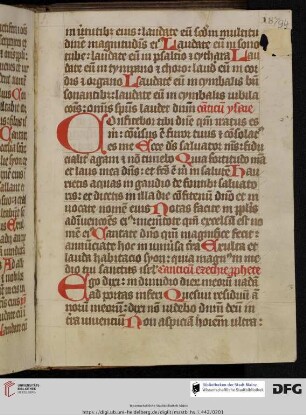 in virtutibus eius: laudate eum secundum multitudi
dinē magnitudinis eius Laudate eum in sono
tube: laudate eum in psalterio et cythara Lau
date eum in tympano et choro: laudate eum in cor
dis et organo Laudate eum in cymbalis bene
sonantibus: laudate eum in cymbalis iubila
cionis: omnis spiritus laudet dominum canticum ysaie
Confitebor tibi domine quoniam iratus es
michi: conversus est furor tuus et consolatus
es me Ecce deus salvator meus: fidu
cialiter agam et non timebo Quia fortitudo mea
et laus mea dominus: et factus est michi in salutem Hau
rietis aquas in gaudio de fontibus salvato
ris: et dicetis in illa die confitemini domino et in
vocate nomen eius Notas facite in populis
adinventiones eius: mementote quoniam excelsum est no
men eius Cantate domino quoniam magnifice fecit:
annunciate hoc in universa terra Exulta et
lauda habitacio syon: quia magnus in me
dio tui sanctus israel canticum ezechie prophete
Ego dixi: in dimidio dierum meorum vadam
ad portas inferi Quesivi residuum an
norum meorum: dixi non videbo dominum deum in
terra viventium Non aspiciam hominem ultra:
UNIVERSITÄTS-
BIBLIOTHEK
HEIDELBERG
Bibliotheken der Stadt Mainz
Wissenschaftliche Stadtbibliothek
DFG
Wissenschaftliche Stadtbibliothek
https://digi.ub.uni-heidelberg.de/diglit/mstb_hs_I_442/0301